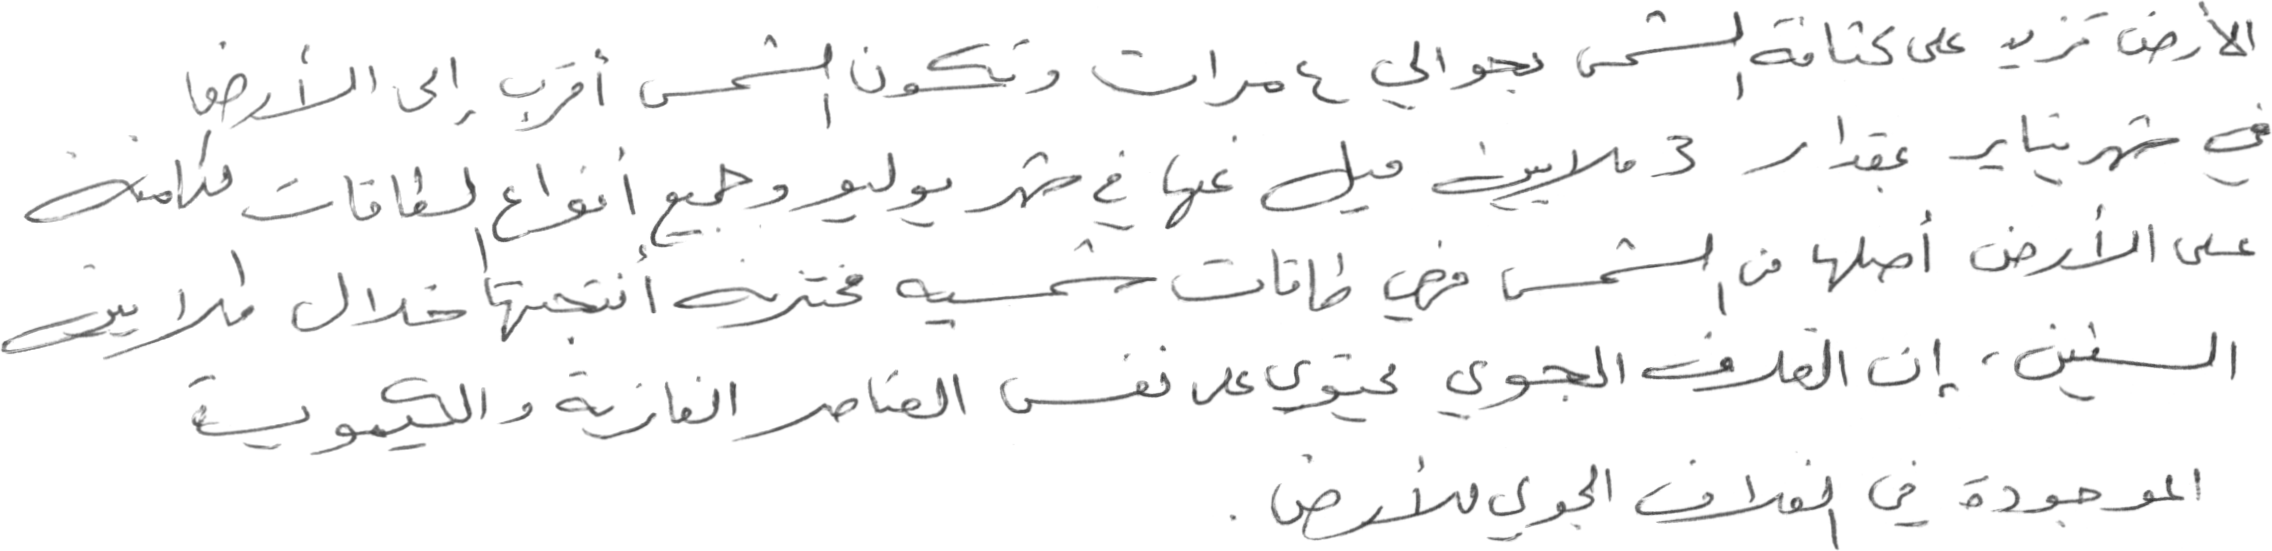 الأرض تزيد على كثافة الشمس بحوالي ٤ مرات وتكون الشمس أقرب إلى الأرض
في شهر يناير بمقدار 3 ملايين ميل عنها في شهر يوليو وجميع أنواع الطاقات الكامنة
على الأرض أصلها من الشمس فهي طاقات شمسيه مختزنه أنتجتها خلال ملايين
السنين، إن الغلاف الجوي يحتوي على نفس العناصر الغازية والكيموية
الموجودة في الغلاف الجوي للأرض.